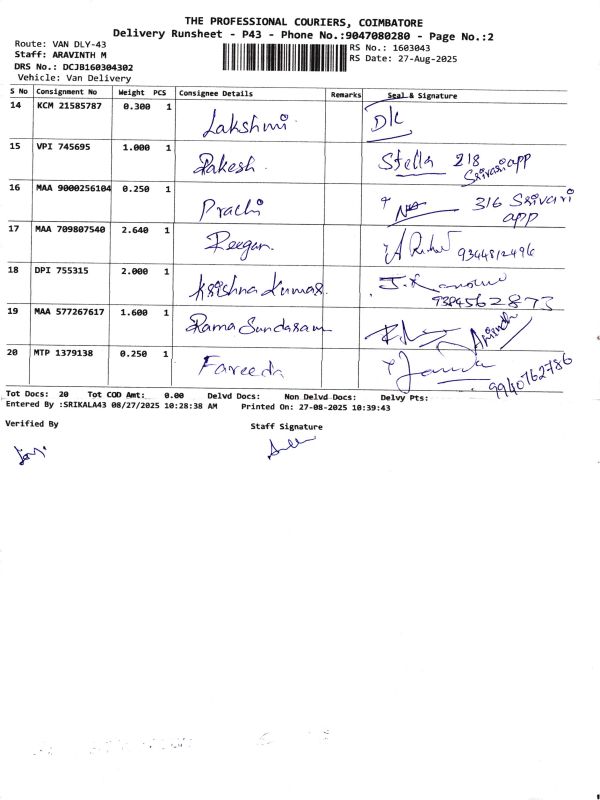 THE PROFESSIONAL COURIERS, COIMBATORE
Delivery Runsheet - P43 - Phone No.:9047080280 - Page No.:2
Route: VAN DLY-43
RS No.: 1603043
Staff: ARAVINTH M
RS Date: 27-Aug-2025
DRS No.: DCJB160304302
Vehicle: Van Delivery
S No Consignment No Weight PCS Consignee Details Remarks Seal & Signature
14 KCM 21585787 0.300 1 Lakshmi DK
15 VPI 745695 1.000 1 Rakesh. Stella 218
Srivari app
16 MAA 9000256104 0.250 1 Prachi 316 Srivari
app
17 MAA 709807540 2.640 1 Reegan. 9344812496
18 DPI 755315 2.000 1 Krishna Kumar.
9384562873
19 MAA 577267617 1.600 1 Rama Sundaram
20 MTP 1379138 0.250 1 Fareeda
9940762786
Tot Docs: 20 Tot COD Amt: 0.00 Delvd Docs: Non Delvd Docs: Delvy Pts:
Entered By :SRIKALA43 08/27/2025 10:28:38 AM Printed On: 27-08-2025 10:39:43
Verified By
Staff Signature